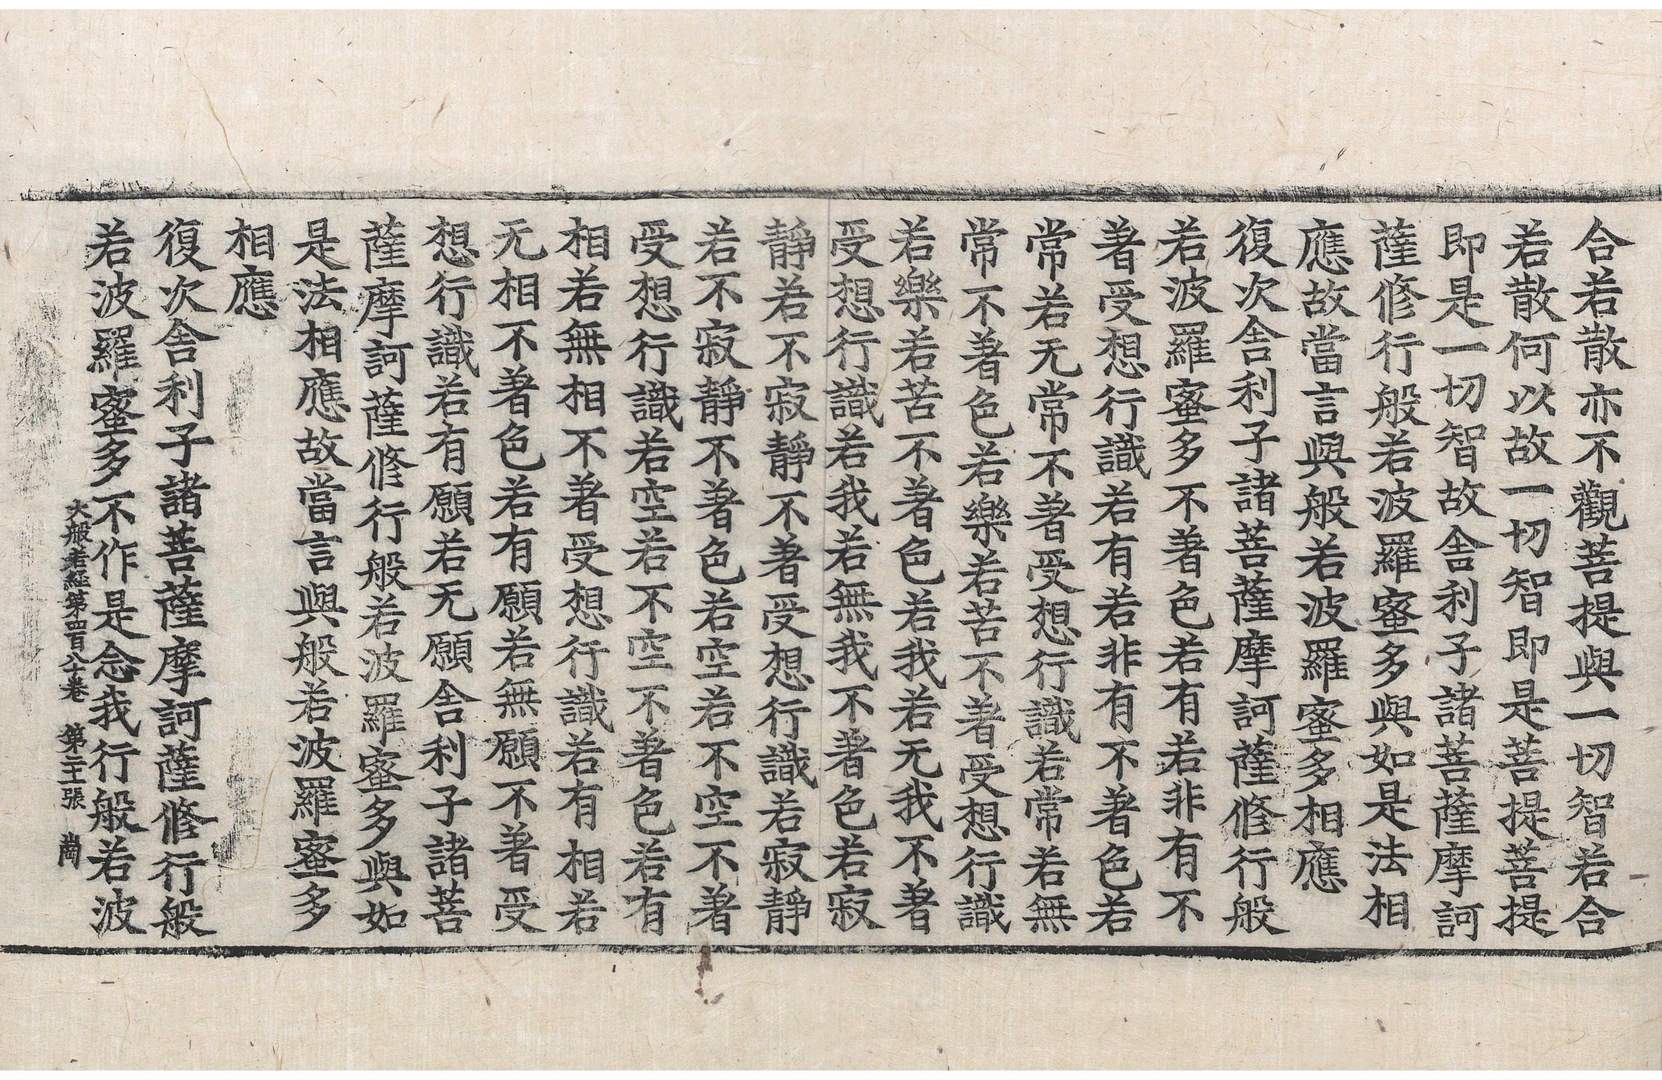 合若散亦不觀菩提與一切智若合
若散何以故一切智即是菩提菩提
即是一切智故舍利子諸菩薩摩訶
薩修行般若波羅蜜多與如是法相
應故當言與般若波羅蜜多相應
復次舍利子諸菩薩摩訶薩修行般
若波羅蜜多不著色若有若非有不
著受想行識若有若非有不著色若
常若无常不著受想行識若常若無
常不著色若樂若苦不著受想行識
若樂若苦不著色若我若无我不著
受想行識若我若無我不著色若寂
靜若不寂靜不著受想行識若寂靜
若不寂靜不著色若空若不空不著
受想行識若空若不空不著色若有
相若無相不著受想行識若有相若
无相不著色若有願若無願不著受
想行識若有願若无願舍利子諸菩
薩摩訶薩修行般若波羅蜜多與如
是法相應故當言與般若波羅蜜多
相應
復次舍利子諸菩薩摩訶薩修行般
若波羅蜜多不作是念我行般若波
大般若經第四百八十卷 第二十張